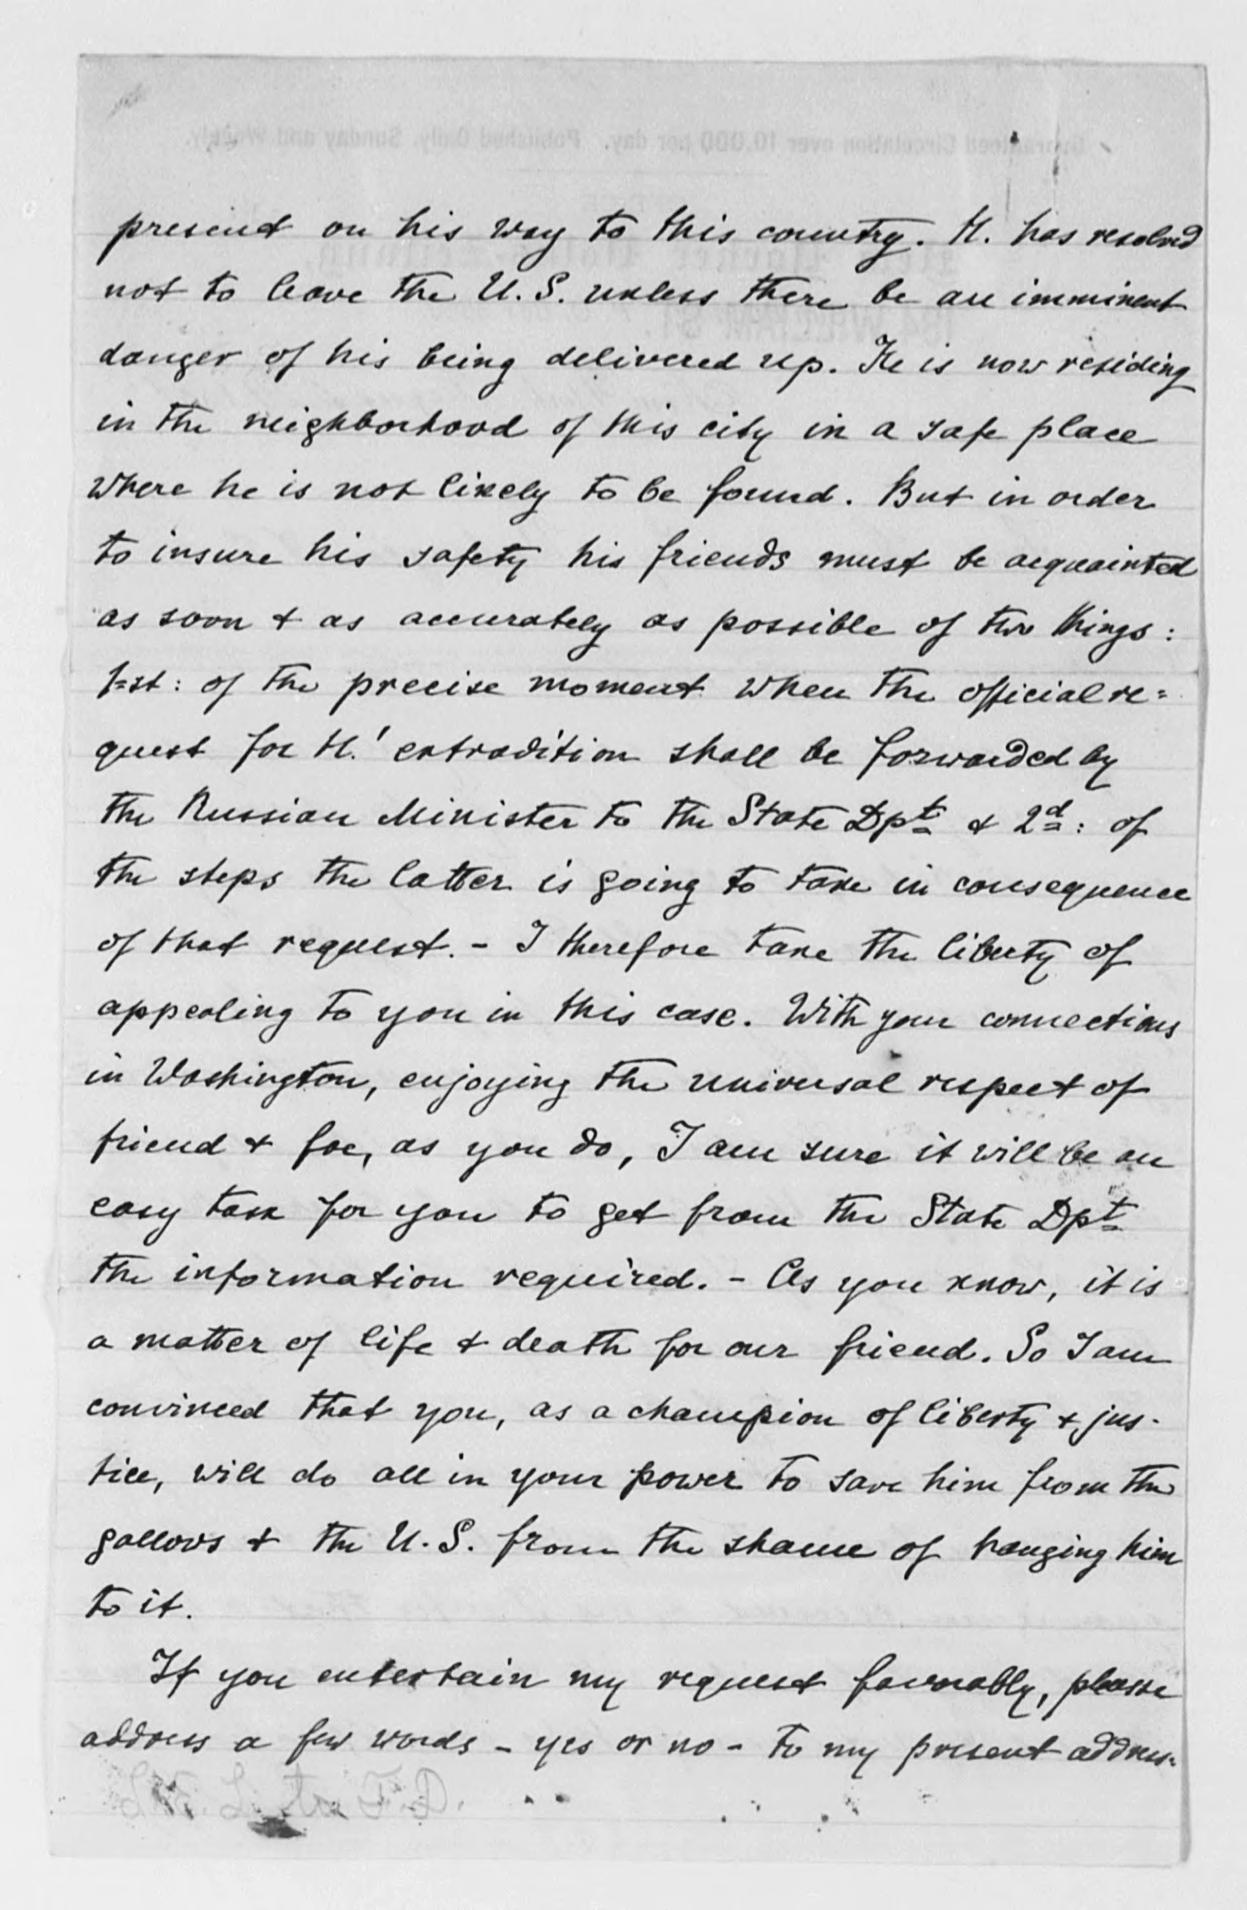 Guaranteed Circulation over 10,000 per day. Published Daily, Sunday and Weekly.
present on his way to this country. H. has resolved
not to leave the U. S. unless there be an imminent
danger of his being delivered up. He is now residing
in the neighborhood of this city in a safe place
where he is not likely to be found. But in order
to insure his safety his friends must be acquainted
as soon & as accurately as possible of two things:
1=st: of the precise moment when the official re=
quest for H.' extradition shall be forwarded by
the Russian Minister to the State Dpt & 2d: of
the steps the latter is going to take in consequence
of that request. - I therefore take the liberty of
appealing to you in this case. With your connections
in Washington, enjoying the universal respect of
friend & foe, as you do, I am sure it will be an
easy task for you to get from the State Dpt
the information required. - As you know, it is
a matter of life & death for our friend. So I am
convinced that you, as a champion of liberty & jus-
tice, will do all in your power to save him from the
gallows & the U. S. from the shame of hanging him
to it.
If you entertain my request favorably, please
address a few words - yes or no - to my present address